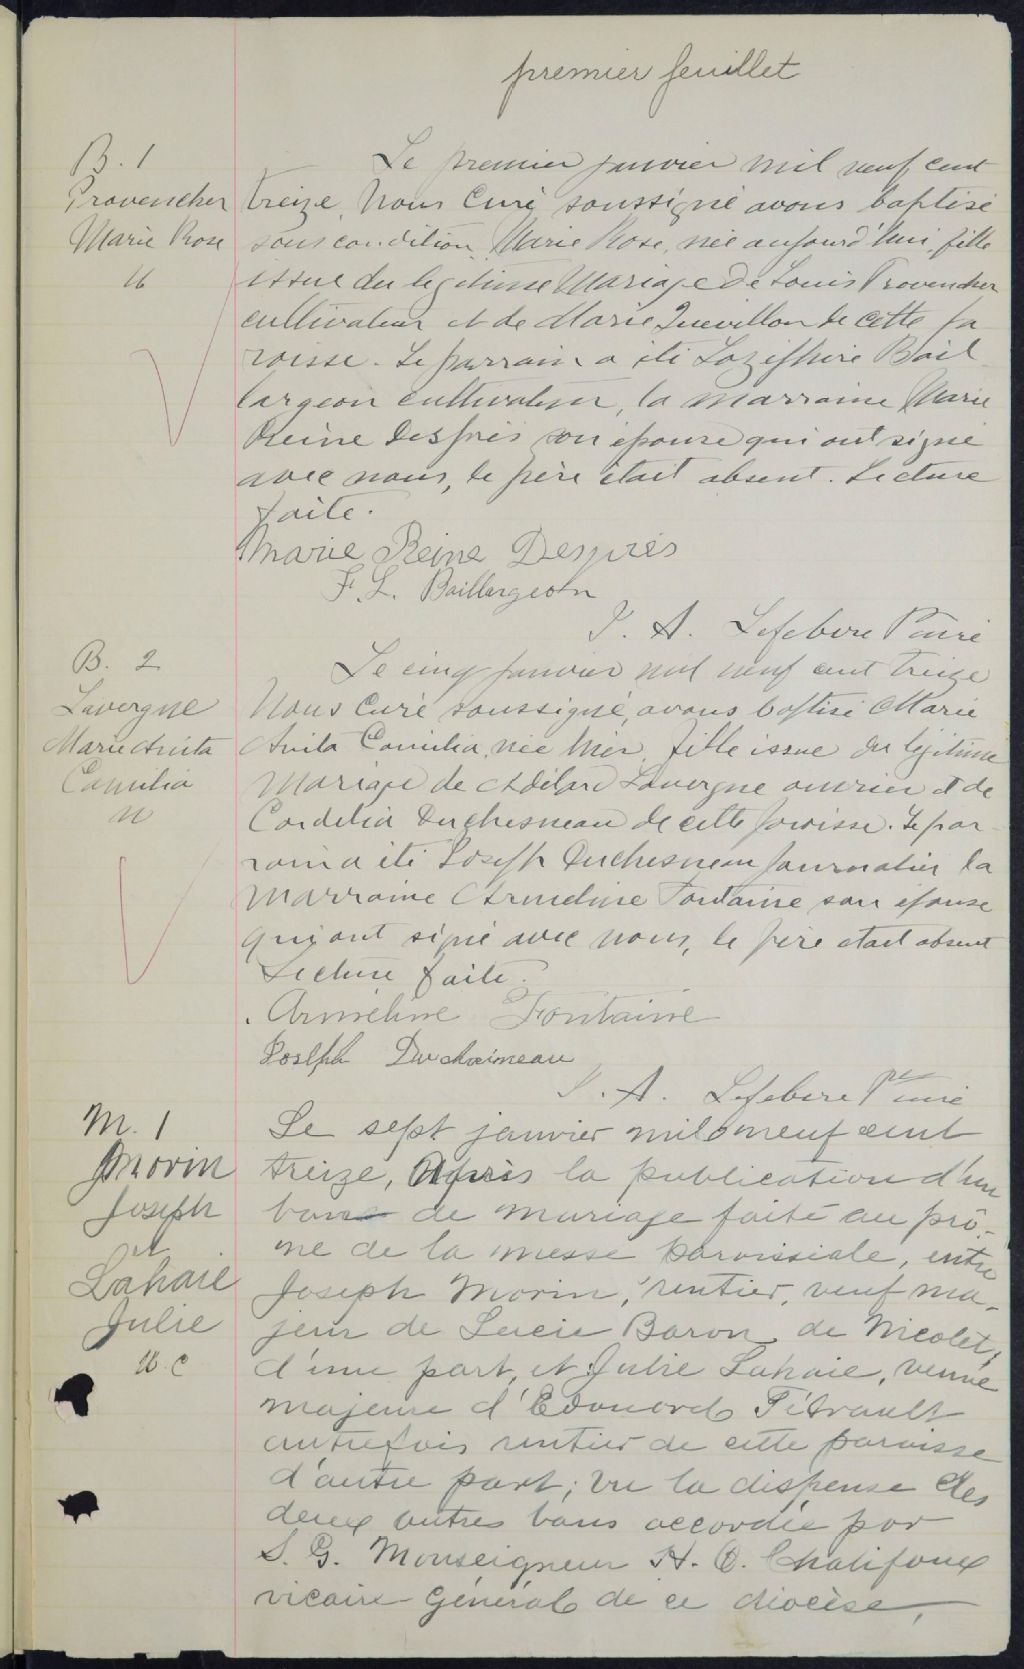 premier feuillet
B. 1
Provencher
Marie Rose
Le premier janvier mil neuf cent
treize, Nous Curé soussigné avons baptisé
sous condition Marie Rose, née aujourd'hui, fille
issue du légitime Mariage de Louis Provencher
cultivateur et de Marie Quevillon de cette pa
roisse. Le parrain a été Bail
largeon cultivateur, la marraine Marie
Reine Desprès son épouse qui ont signé
avec nous, le père était absent. Lecture
faite.
Marie Reine Desprès
F. L. Baillargeon
J. A. Lefebvre Ptre curé
B. 2
Lavergne
Marie Anita
Camilia
Le cinq janvier mil neuf cent treize
Nous Curé soussigné, avons baptisé Marie
Anita Camilia, née hier, fille issue du légitime
Mariage de Adélard Lavergne ouvrier et de
Cordelia Duchesneau de cette paroisse. Le par
rain a été Joseph Duchesneau journalier la
marraine Armeline Fontaine son épouse
qui ont signé avec nous, le père était absent
Lecture faite.
Armeline Fontaine
Joseph Duchaineau
J. A. Lefebvre Ptre curé
M. 1
Morin
Joseph
et
Lahaie
Julie
Le sept janvier mil neuf cent
treize, Après la publication d'un
banc de mariage faite au prô-
ne de la messe paroissiale, entre
Joseph Morin, rentier, veuf ma-
jeur de Lucie Baron, de Nicolet,
d'une part, et Julie Lahaie, veuve
majeure d'Edouard Tétrault
autrefois rentier de cette paroisse
d'autre part; vu la dispense des
deux autres bans accordée par
S. G. Monseigneur H. O. Chalifoux
vicaire Général de ce diocèse,